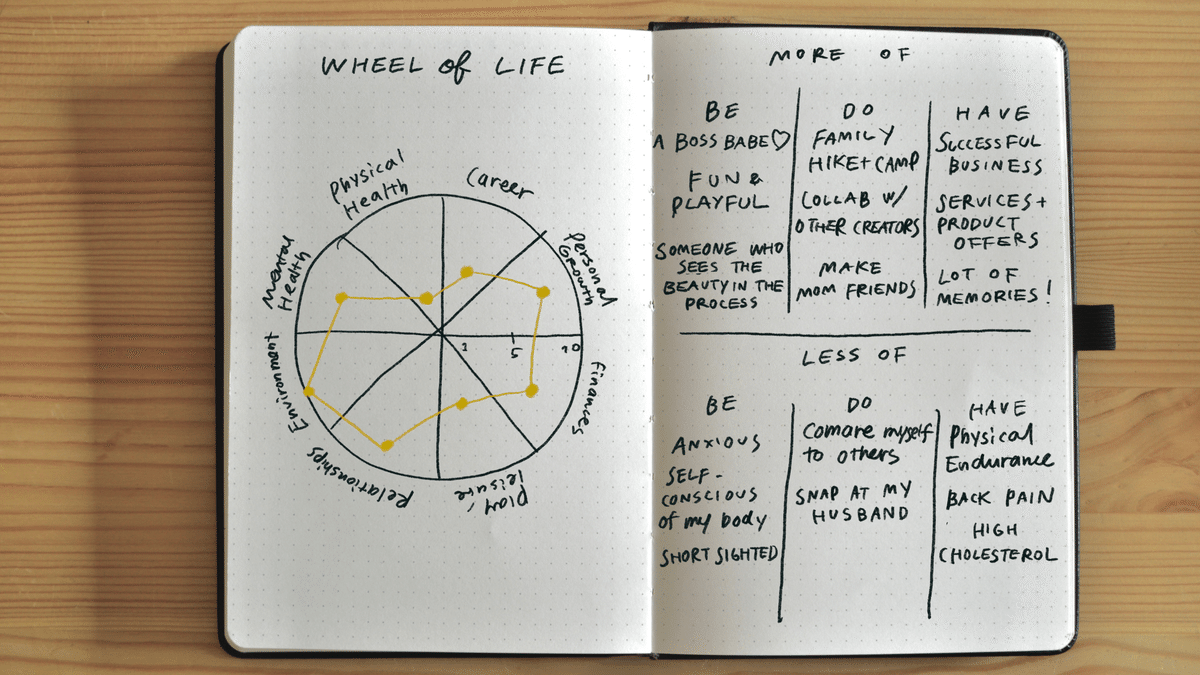 WHEEL of LIFE
Physical
Health
Career
Personal
Growth
Finances
Play/
leisure
Relationships
Environment
Mental
Health
1
5
10
MORE OF
BE
A BOSS BABE♡
FUN &
PLAYFUL
SOMEONE WHO
SEES THE
BEAUTY IN THE
PROCESS
DO
FAMILY
HIKE + CAMP
COLLAB W/
OTHER CREATORS
MAKE
MOM FRIENDS
HAVE
SUCCESSFUL
BUSINESS
SERVICES +
PRODUCT
OFFERS
LOT OF
MEMORIES!
LESS OF
BE
ANXIOUS
SELF-
CONSCIOUS
of my body
SHORT SIGHTED
DO
Comare myself
to others
SNAP AT MY
HUSBAND
HAVE
Physical
Endurance
BACK PAIN
HIGH
CHOLESTEROL